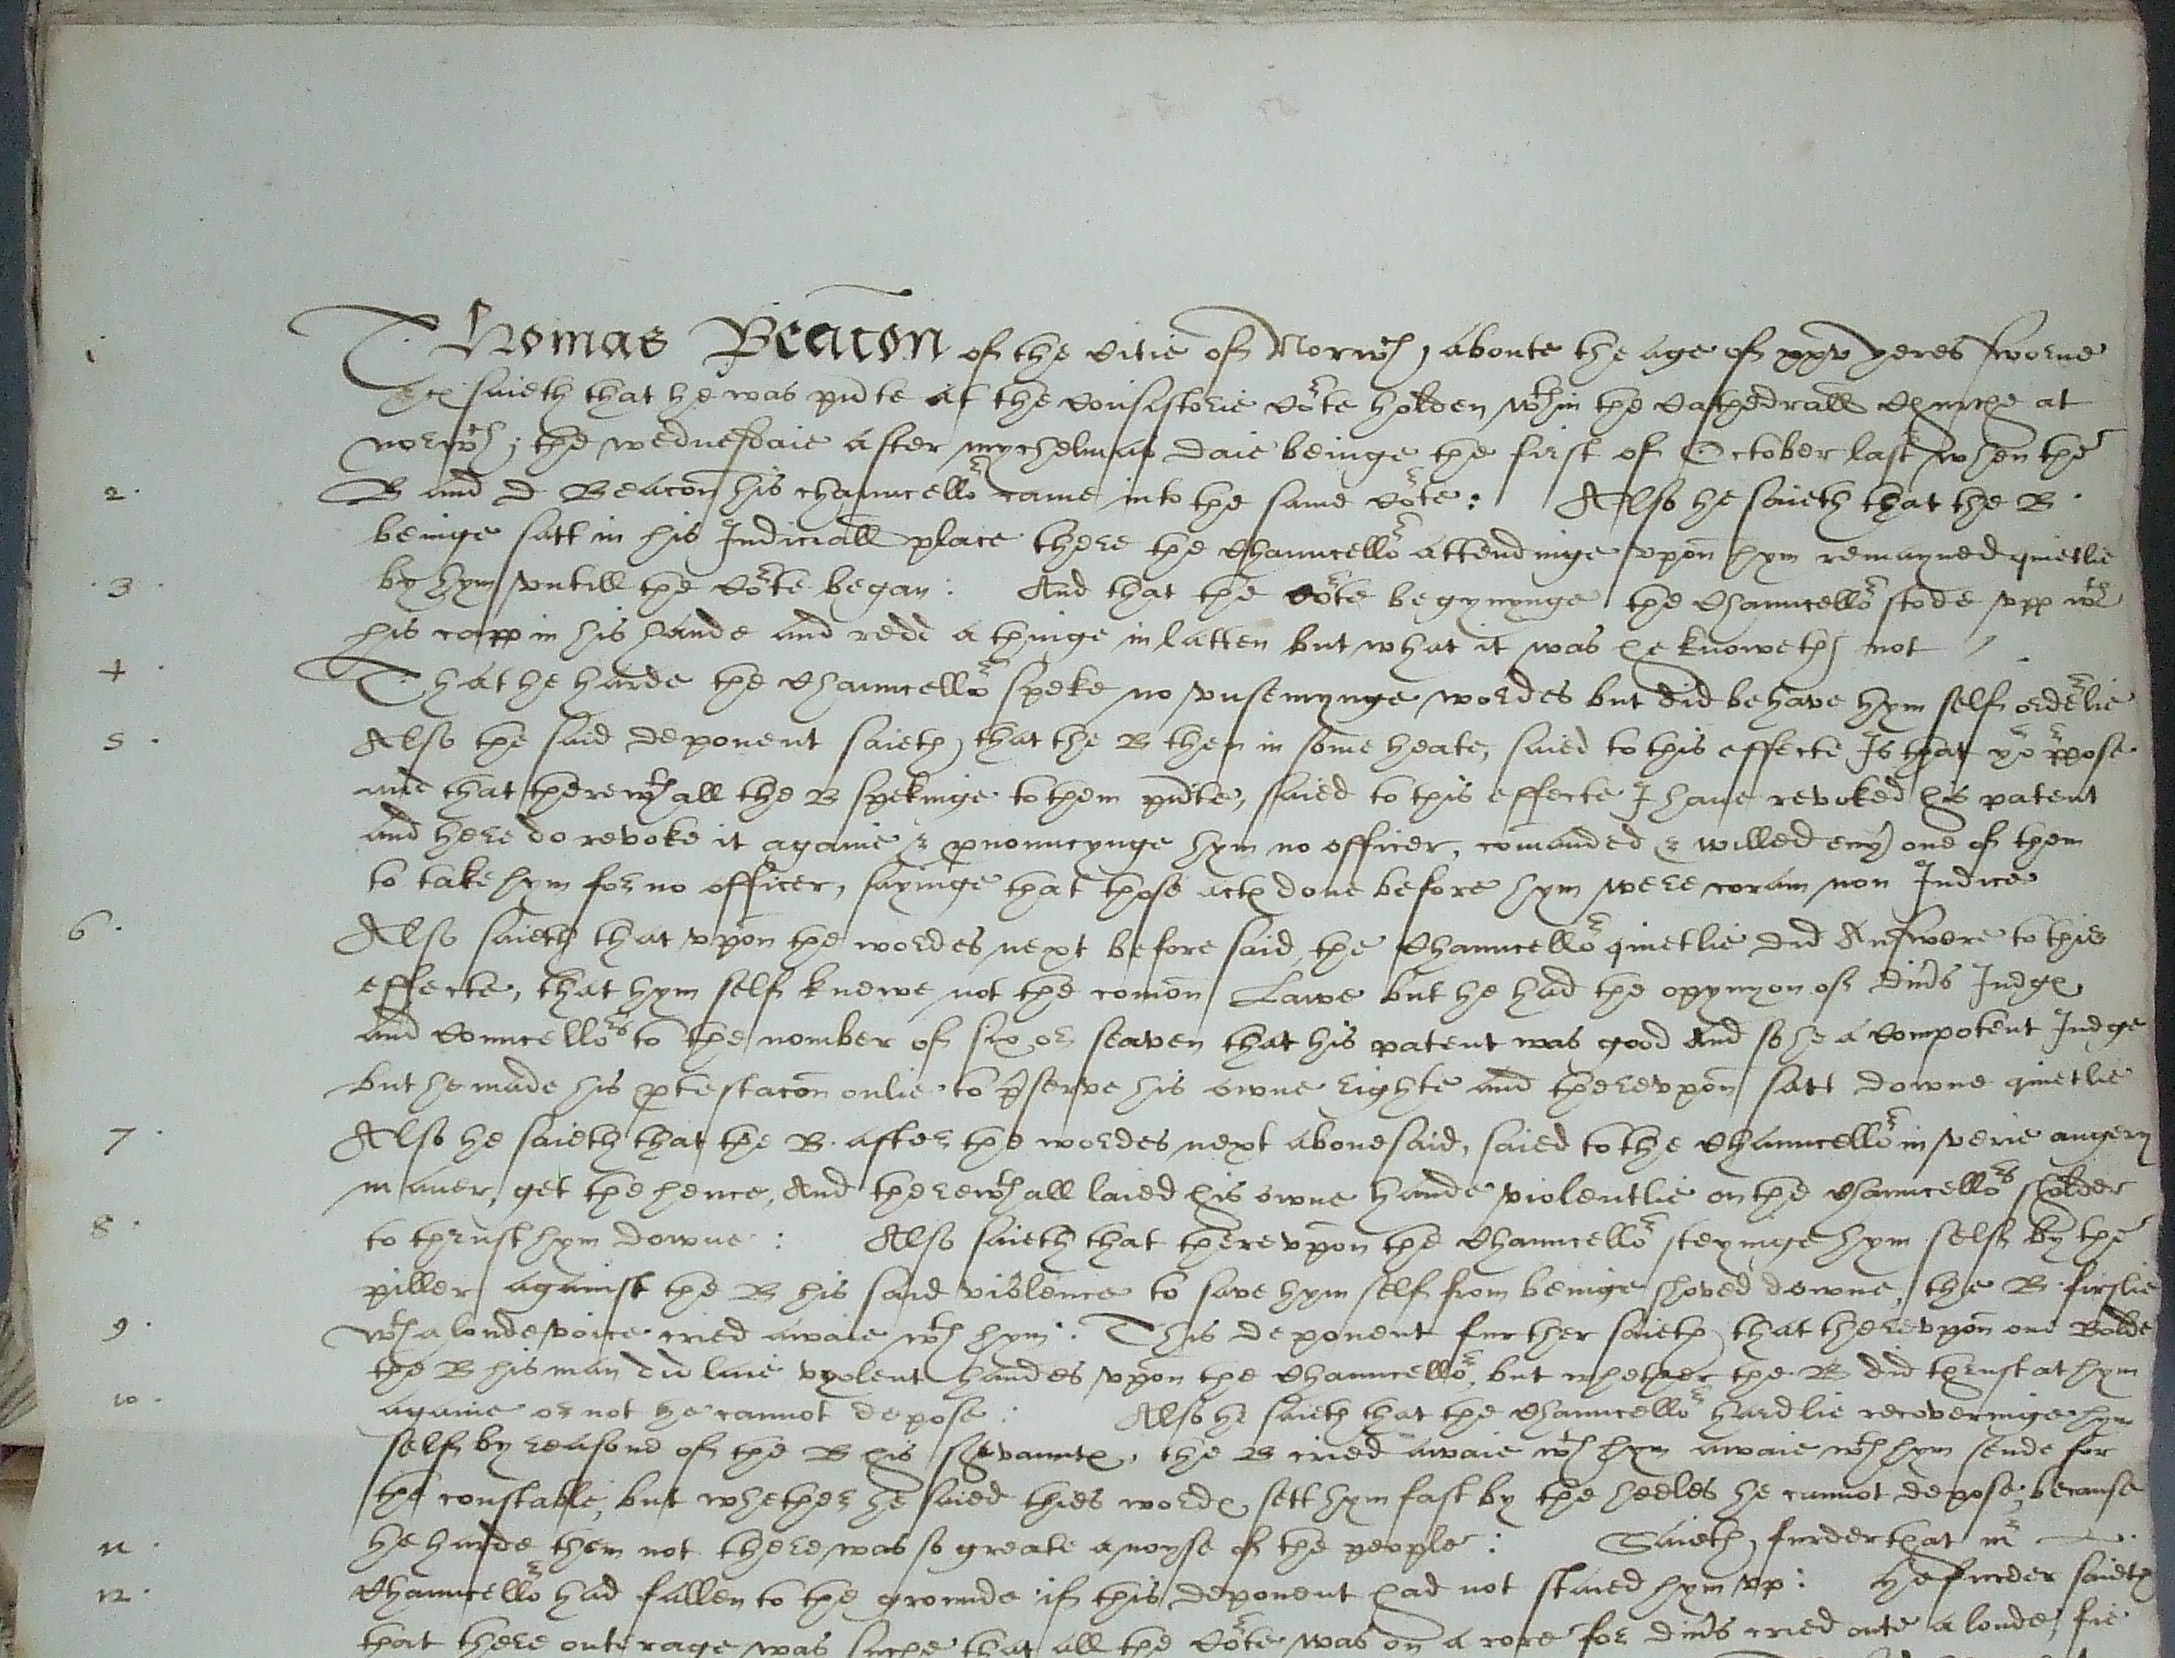 i Thomas Beacon of the Citie of Norwch, aboute the age of xxv yeres sworne
&c saieth that he was pnte at the Consistorie Cote holden wthin the Cathedrall Churche at
norwch, the wednesdaie after mychelmas daie beinge the first of October last when the
2. B and D Beacon his chauncello came into the same Cote : Also he saieth that the B.
beinge satt in his Judiciall place there the Chauncello attendinge vpon hym remayned quietlie
3. by hym vntill the Cote began : And that the Cote begynynge the Chauncello stode vpp wth
his capp in his hande and redd a thinge in latten but what it was he knoweth not
4. That he harde the Chauncello speke no vnsemynge wordes but did behave hym self orderlie
5. Also the said deponent saieth, that the B then in some heate, saied to this effecte Is that yor ppose
and that therewthall the B spekinge to them pnte, saied to this effecte I haue revoked his patent
and here do revoke it againe & pnouncynge hym no officer, comanded & willed euy one of them
to take hym for no officer, sayinge that those actes done before hym were coram non Judice
6. Also saieth that vpon the wordes next before said, the Chauncello quietlie did Answere to this
effecte, that hym self knewe not the comon Lawe but he had the opynyon of diuds Judges
and Councellors to the nomber of six or seaven that his patent was good And so he a Compotent Judge
but he made his ptestacon onlie to pserve his owne righte and therevpon satt downe quietlie
7. Also he saieth that the B. after the wordes next abouesaid, saied to the Chauncello in verie angery
maner, get the hence, And therewthall laied his owne hande violentlie on the Chauncellors sholder
8. to thrust hym downe : Also saieth that therevpon the Chauncello steyinge hym self by the
piller against the B his said violence to save hym self from beinge shoved downe, the B. firslie
9. wth a loude voice cried awaie wth hym : This deponent further saieth, that therevpon one Bolde
the B his man did laie vyolent handes vpon the Chauncello, but whether the B did thrust at hym
10. againe or not he cannot depose : Also he saieth that the Chauncello hardlie recoveringe hym
self by reasond of the B his servauntes, the B cried awaie wth hym awaie wth hym sende for
the constable, but whether he saied thies wordes sett hym fast by the heeles he cannot depose, because
11. he harde them not there was so greate a noyse of the people : Saieth, furder that mr
12. Chauncello had fallen to the grounde if this deponent had not staied hym vp : He furder saieth
that there outerage was suche that all the Cote was on a rore for diuds cried oute a loude, fie